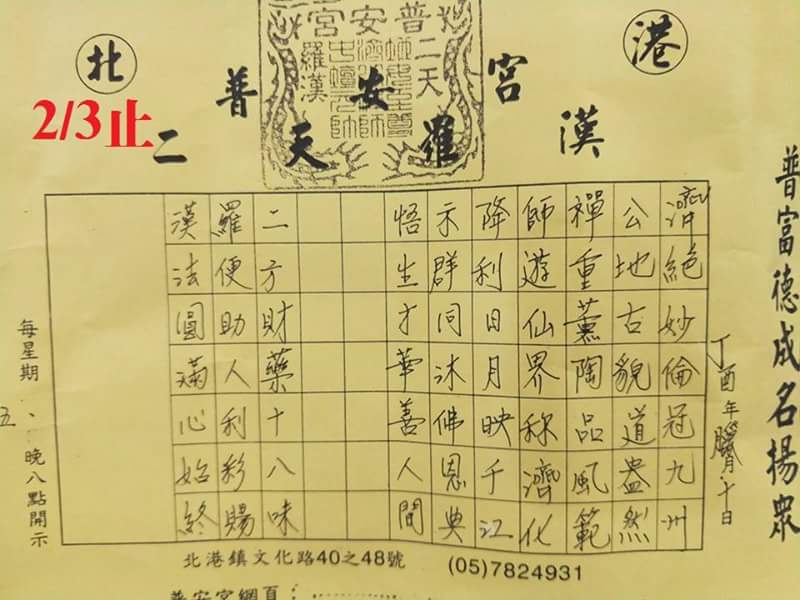 北港
普安宮
二天羅漢
2/3止
普安宮
二天
羅漢
普富德成名揚眾
丁酉年臘月十日
濟絕妙倫冠九州
公地古貌道盎然
禪重薰陶品風範
師遊仙界称濟化
降利日月映千江
示群同沐佛恩典
悟生才華善人間
二方財藥十八味
羅便助人利彩賜
漢法圓滿心始終
每星期五、晚八點開示
北港鎮文化路40之48號 (05)7824931
普安宮網頁：